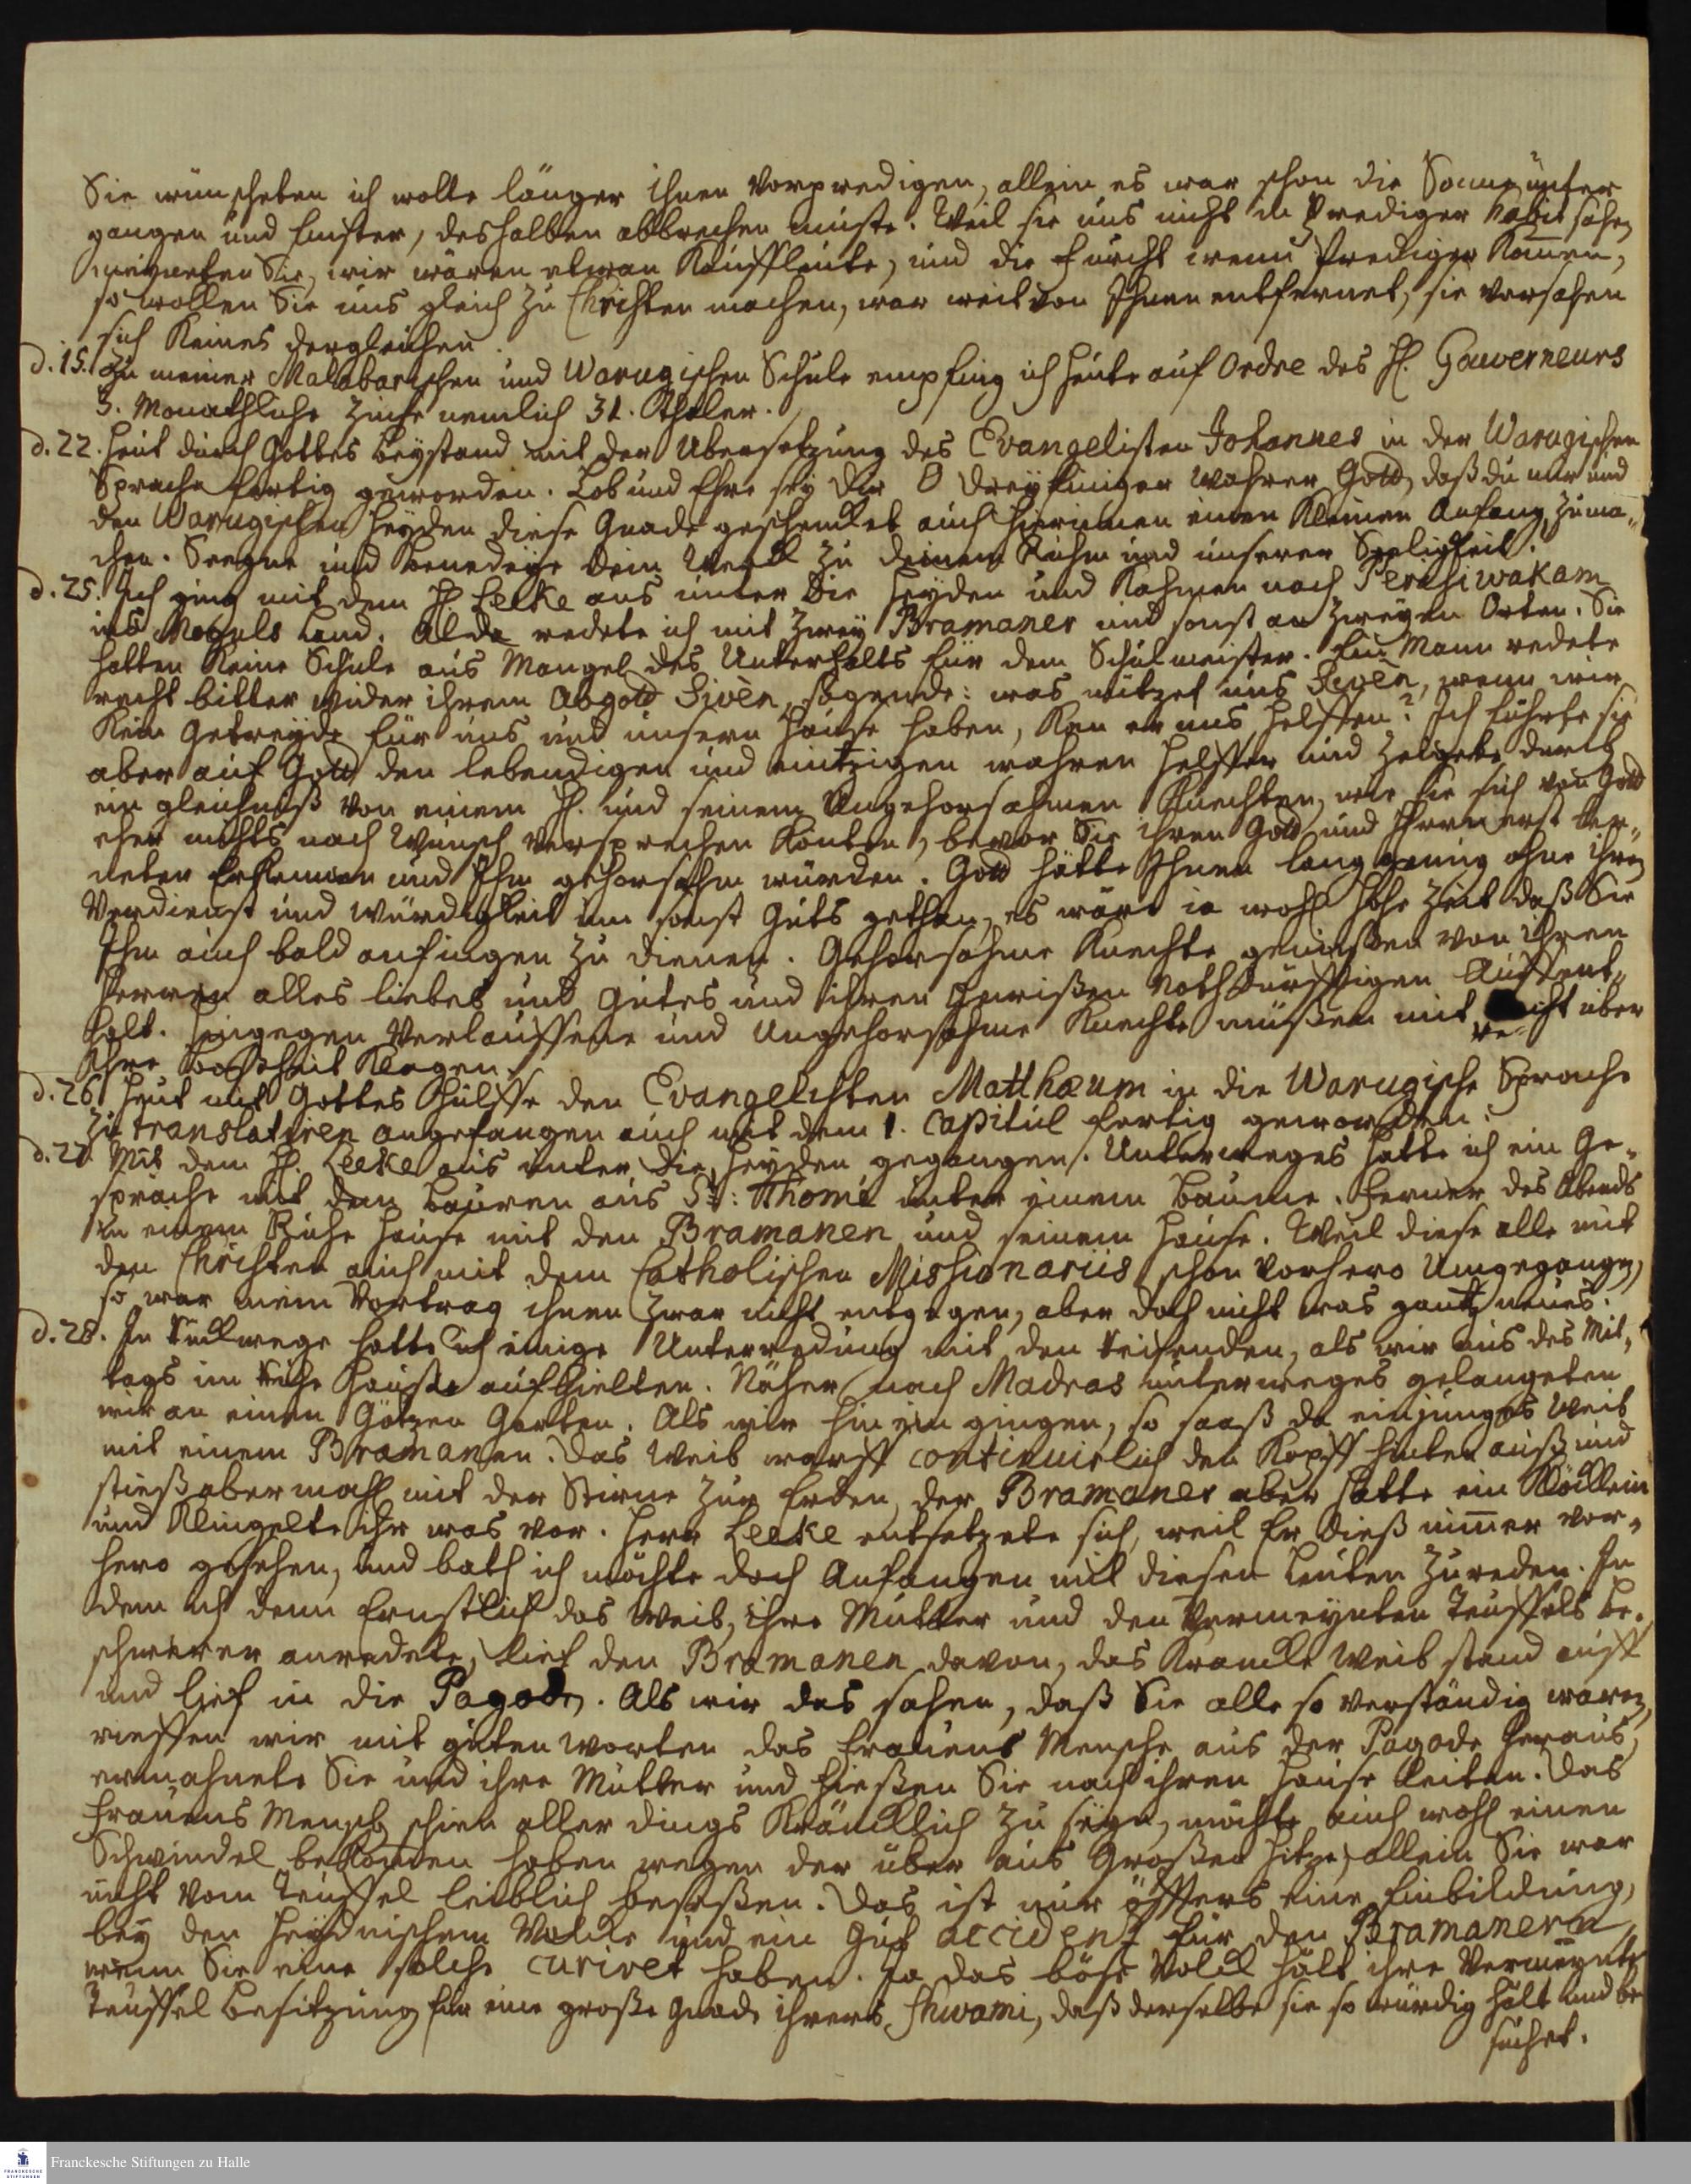 Sie wünscheten ich wolte länger ihnen vorpredigen, allein es war schon die Sonne unter
gangen und finster, deshalben abbrechen muste. Weil sie uns nicht in Prediger habit sahen
meyneten Sie, wir wären etwan Kauffleute, und die Furcht wenn Prediger kom̄en,
so wollen Sie uns gleich zu Christen machen, war weit von Ihnen entfernet, sie versahen
sich keines dergleichen.
d. 15. Zu meiner Malabarischen und Warugischen Schule empfing ich heute auf Ordre des H. Gouverneurs
3. Monathliche Zinse nemlich 31. Thaler.
d. 22. Heut durch Gottes Beystand mit der Ubersetzung des Evangelisten Johannes in der Warugischen
Sprache fertig geworden. Lob und Ehre sey dir O dreyeiniger wahrer Gott, daß du mir und
den Warugischen Heyden diese Gnade geschencket auch hierinnen einen kleinen Anfang zu ma-
chen. Seegne und benedeye dein Werck zu deinem Ruhm und unserer Seeligkeit.
d. 25. Ich ging mit dem H. Leeke aus unter die Heyden und kahmen nach Perihiwakam
ins Moguls Land. Alda redete ich mit zwey Bramaner und sonst an zweyen Orten. Sie
hatten keine Schule aus Mangel des Unterhalts für dem Schulmeister. Ein Mann redete
recht bitter wider ihrem Abgott Siwèn, sagende: was nützet uns Siwèn, wenn wir
kein Getreyde für uns und unsern Hause haben, kan er uns helffen? Ich führte sie
aber auf Gott den lebendigen und eintzigen wahren Helffer und zeigete durch
ein gleichniß von einem H. und seinem Ungehorsahmen Knechten, wie sie sich von Gott
eher nichts nach Wunsch versprechen könten, bevor Sie ihren Gott und Herrn erst
erkennen und Ihm gehorsahm würden. Gott hätte Ihnen lang genug ohne ihren
Verdienst und würdigkeit um sonst Guts gethan, es wäre ia wohl hohe Zeit daß Sie
Ihm auch bald anfingen zu dienen. Gehorsahme Knechte genießen von ihren
Herren alles liebes und Gutes und ihren gewißen Nothdürfftigen Auffent-
halt. Hingegen verlauffene und Ungehorsahme Knechte müßen mit recht über
Ihre boßheit klagen.
d. 26. Heut mit Gottes Hülffe den Evangelisten Matthæum in die Warugische Sprache
zu translatiren angefangen auch mit dem 1. Capitul fertig geworden.
d. 27. Mit dem H. Leeke aus unter die Heyden gegangen. Unterweges hatte ich ein Ge-
spräche mit dem Bauren aus St: Thomé unter einem Baume. Ferner des Abends
in einem Ruhe Hause mit den Bramanen und seinem Hause. Weil diese alle mit
den Christen auch mit dem Catholischen Missionariis schon vorhero Umgegangen,
so war mein Vortrag ihnen zwar nicht entgegen, aber doch nicht was gantz neues.
d. 28. In Rückwege hatte ich einige Unterredung mit den Reisenden, als wir uns des Mit-
tags im Ruhe Hause aufhielten. Näher nach Madras unterweges gelangeten
wir an einen Götzen Garten. Als wir hin ein gingen, so saaß da ein junges Weib
mit einem Bramanen. Das Weib warff continuirlich den Kopff hinten auß und
stieß abermahl mit der Stirne zur Erden, der Bramaner aber hatte ein Klöcklein
und klingelte ihr was vor. Herr Leeke entsetzete sich, weil Er dieß nim̄er vor-
hero gesehen, und bath ich möchte doch Anfangen mit diesen Leuten zu reden. In
dem ich denn Ernstlich das Weib, ihre Mutter und den Vermeynten Teuffels be-
schwerer anredete, lief den Bramanen davon, das krancke Weib stand auff
und lief in die Pagode. Als wir das sahen, daß Sie alle so verständig waren,
rieffen wir mit guten worten das Frauens Mensche aus der Pagode heraus,
ermahnete Sie und ihre Mutter und hießen Sie nach ihren Hause leiten. Das
Frauens Mensch schien aller dings kräncklich zu seyn, möchte auch wohl einen
Schwindel bekom̄en haben wegen der über aus Großen Hitze, allein Sie war
nicht vom Teuffel leiblich besessen. Das ist nur öffters eine Einbildung,
bey den heydnischem Volcke und ein gut accident für den Bramanern,
wenn Sie eine solche curiret haben. Ja das böse Volck hält ihre Vermeynte
Teuffel Besitzung für eine große Gnade ihrers Shwami, daß derselbe sie so würdig hält und be
suchet.
Franckesche Stiftungen zu Halle
FRANCKESCHE
STIFTUNGEN